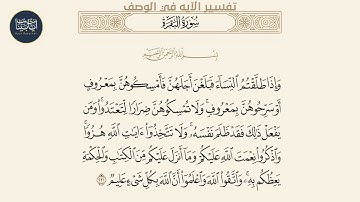 تفسير الآيه في الوصف
سُورَةُ البَقَرَةِ
بِسْمِ اللَّهِ الرَّحْمَٰنِ الرَّحِيمِ
وَإِذَا طَلَّقْتُمُ ٱلنِّسَآءَ فَبَلَغْنَ أَجَلَهُنَّ فَأَمْسِكُوهُنَّ بِمَعْرُوفٍ
أَوْ سَرِّحُوهُنَّ بِمَعْرُوفٍ ۚ وَلَا تُمْسِكُوهُنَّ ضِرَارًا لِّتَعْتَدُوا۟ ۚ وَمَن
يَفْعَلْ ذَٰلِكَ فَقَدْ ظَلَمَ نَفْسَهُۥ ۚ وَلَا تَتَّخِذُوٓا۟ ءَايَٰتِ ٱللَّهِ هُزُوًا ۚ
وَٱذْكُرُوا۟ نِعْمَتَ ٱللَّهِ عَلَيْكُمْ وَمَآ أَنزَلَ عَلَيْكُم مِّنَ ٱلْكِتَٰبِ وَٱلْحِكْمَةِ
يَعِظُكُم بِهِۦ ۚ وَٱتَّقُوا۟ ٱللَّهَ وَٱعْلَمُوٓا۟ أَنَّ ٱللَّهَ بِكُلِّ شَىْءٍ عَلِيمٌ ٢٣١